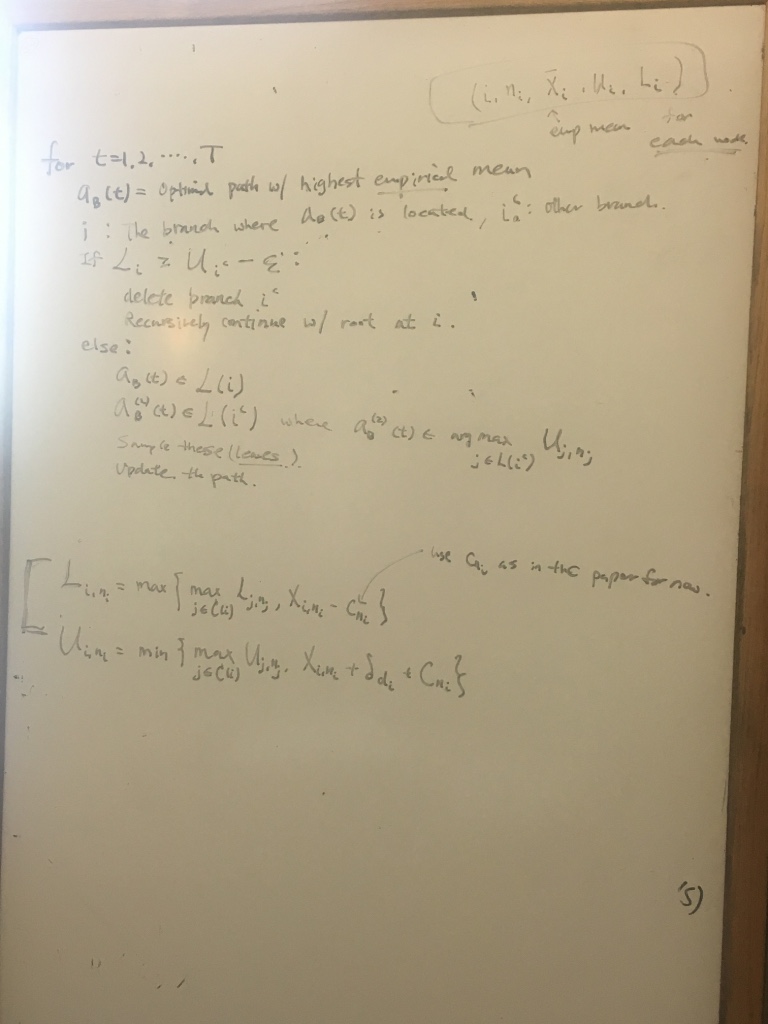 (i, nᵢ, X̄ᵢ, Uᵢ, Lᵢ)
↑
emp mean for
each node
for t=1,2,....,T
a_B(t) = optimal path w/ highest empirical mean
i : The branch where a_B(t) is located, i^c : other branch.
If L_i ≥ U_{i^c} - ε :
delete branch i^c
Recursively continue w/ root at i.
else:
a_B(t) ∈ L(i)
a_B^{(2)}(t) ∈ L(i^c) where a_B^{(2)}(t) ∈ arg max_{j∈L(i^c)} U_{j,n_j}
Sample these (leaves).
Update the path.
use C_{n_i} as in the paper for now.
L_{i,n_i} = max { max_{j∈C(i)} L_{j,n_j}, X_{i,n_i} - C_{n_i} }
U_{i,n_i} = min { max_{j∈C(i)} U_{j,n_j}, X_{i,n_i} + δ_{d_i} + C_{n_i} }
's)